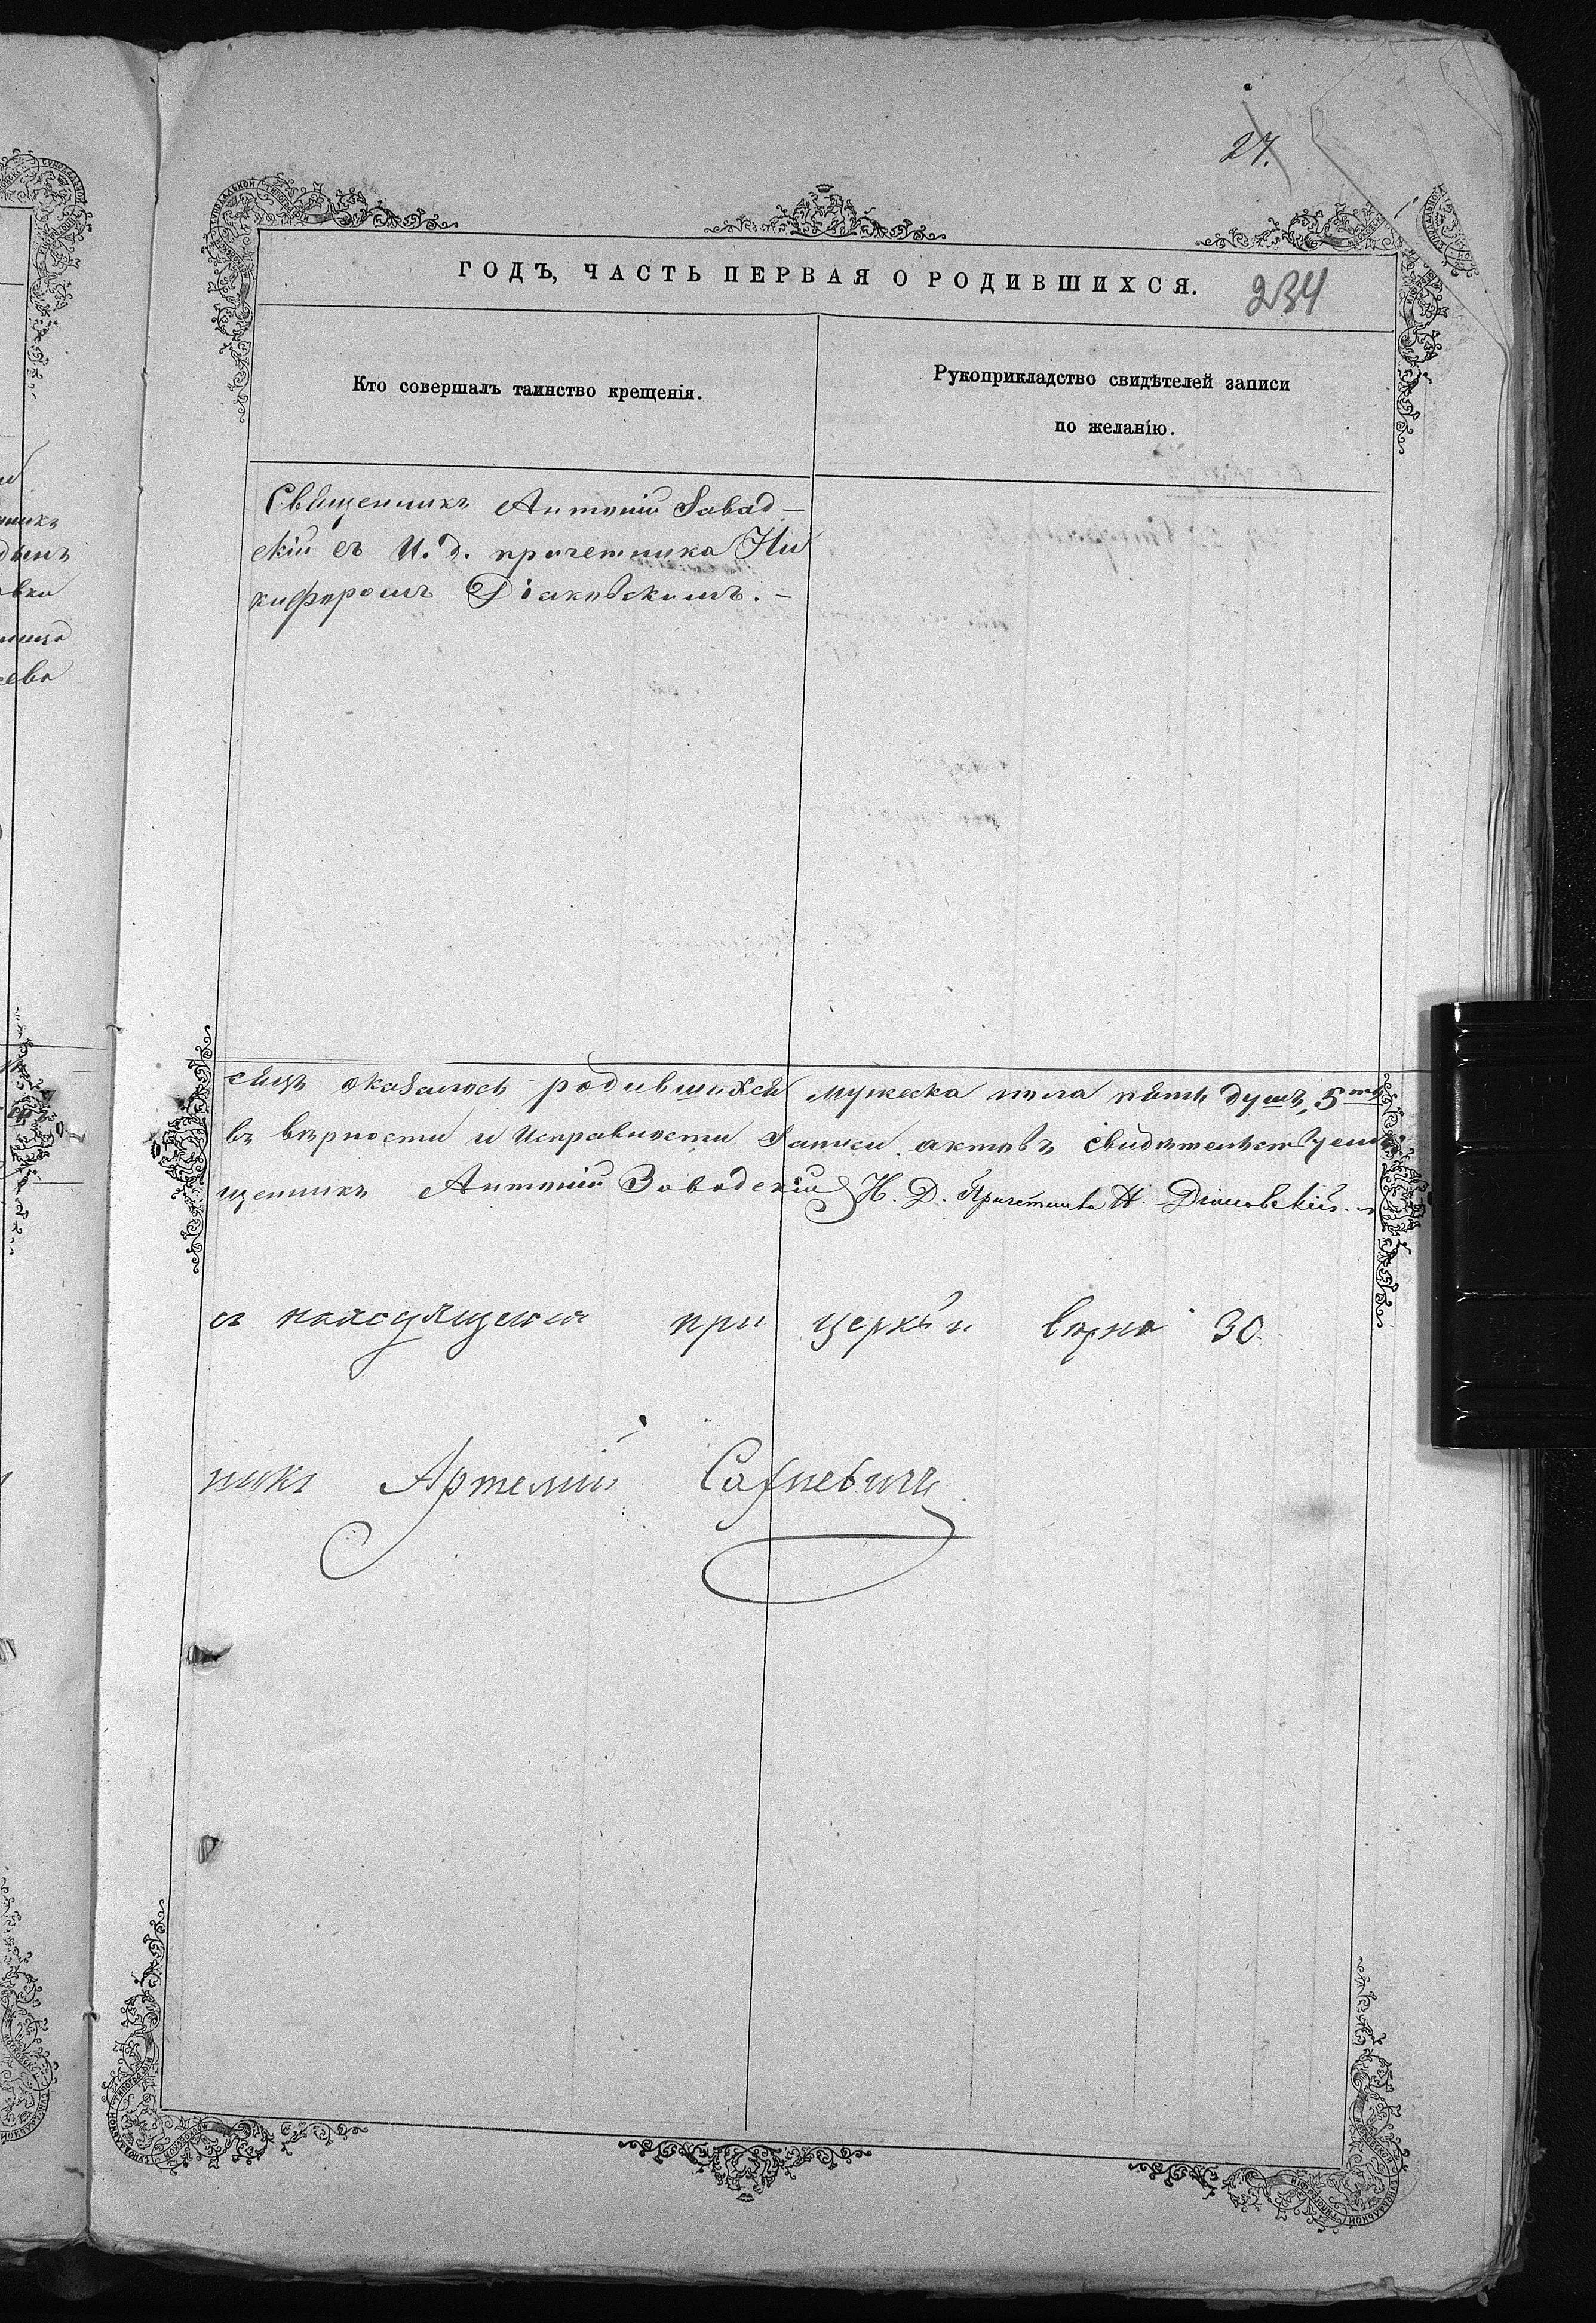 27.
ГОДЪ, ЧАСТЬ ПЕРВАЯ О РОДИВШИХСЯ.
234
Кто совершалъ таинство крещенія.
Рукоприкладство свидѣтелей записи
по желанію.
Священникъ Антоній Завад-
скій съ И. д. причетника Ни
кифоромъ Діаковскимъ. -
сяцъ оказалось родившихся мужеска пола пять душъ, 5ть
въ вѣрности и исправности записи актовъ свидѣтельствуемъ
щенникъ Антоній Завадскій И. Д. Причетника Н. Діаковскій.
съ находящеюся при церкви вѣрна 30
никъ Артемій